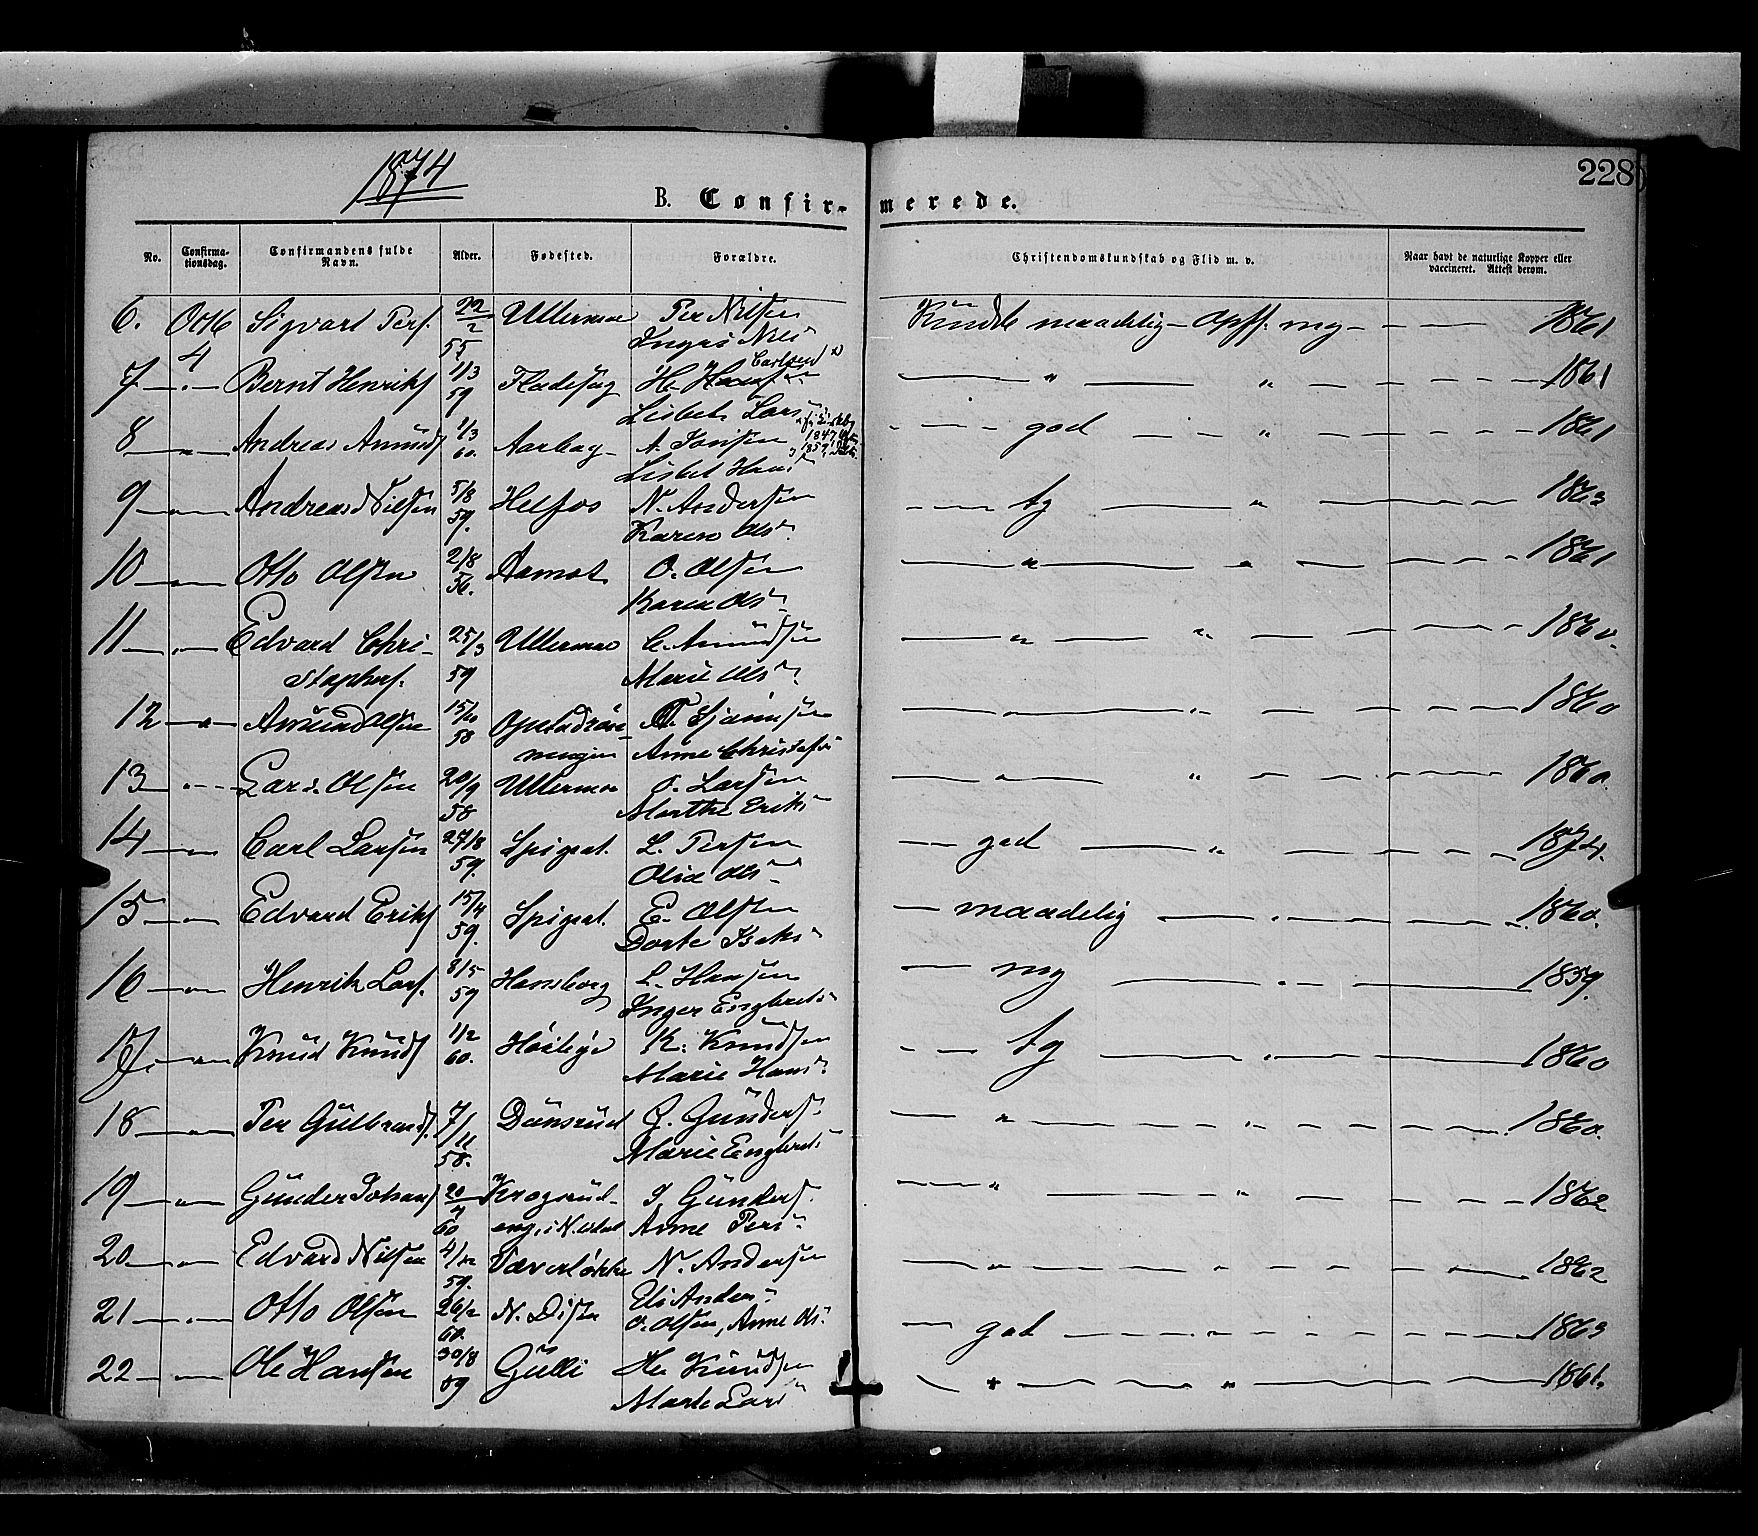 1874
228
B. Confir- merede.
No. Confirma-tionsdag. Confirmandens fulde Navn. Alder. Fødested. Forældre. Christendomskundskab og Flid m. v. Naar havt de naturlige Kopper eller vaccineret. Attest derom.
6. Octb Sigvart Pers. 22/2 Ullermoe Per Nilsen Kundsk maadelig – Opf. mg – – – 1861
4 55 Inger Nils
7 — " — Bernt Henriks 11/3 Fladesag H. Carlsen — " — " — 1861
59 Lisbet Lars
8 — " Andreas Amunds 1/3 Aarbag A. Jonsen god " 1861
60. Lisbet Hans
9 — " — Andreas Nilsen 5/8 Helfos N. Andersen — tg — " — 1863
59. Karen Ols
10 — " — Otto Olsen 2/8 Aamot O. Olsen — " — " — 1861
56. Karen Ols
11 — " — Edvard Chri- 25/3 Ullermoe C. Amundsen — " — " — 1860.
stophers. 59 Marie Ols
12 — " — Amund Olsen 15/10 O. — " — " — 1860
58 Anne Christofs
13 — " — Lars Olsen 20/9 Ullermoe O. Larsen — " — " — 1860.
58 Marthe Eriks
14 — " — Carl Larsen 27/8 Spigset. L. Persen — god — " — 1874.
59. Olia Ols
15 — " — Edvard Eriks 15/4 Spigset. E. Olsen — maadelig — " — 1860.
59. Dorte Isaks
16 — " — Henrik Lars. 8/5 Hansborg L. Hansen — mg — " — 1859.
59 Inger Engbrets
17. — " — Knud Knuds 1/2 K. Knudsen — tg — " — 1860
60. Marie Hans
18 — " — Per Gulbrands. 7/11 Dønsrud G. Gunders. — " — " — 1860.
58. Marie Engbrets
19 — " — Gunder Johans 20 Krogsrud- J Gunders. — " — " — 1862
60 eng. i N. Anne Pers
20 — " — Edvard Nilsen 4/12 Væverløkke N. Andersen — " — " — 1862
59. Eli Anders
21 — " — Otto Olsen 26/2 N. Disen O. Olsen, Anne Ols. — god — " — 1863
60.
22 — " — Ole Hansen 30/8 Gulli H. Knudsen — " — " — 1861.
59 Marte Lars